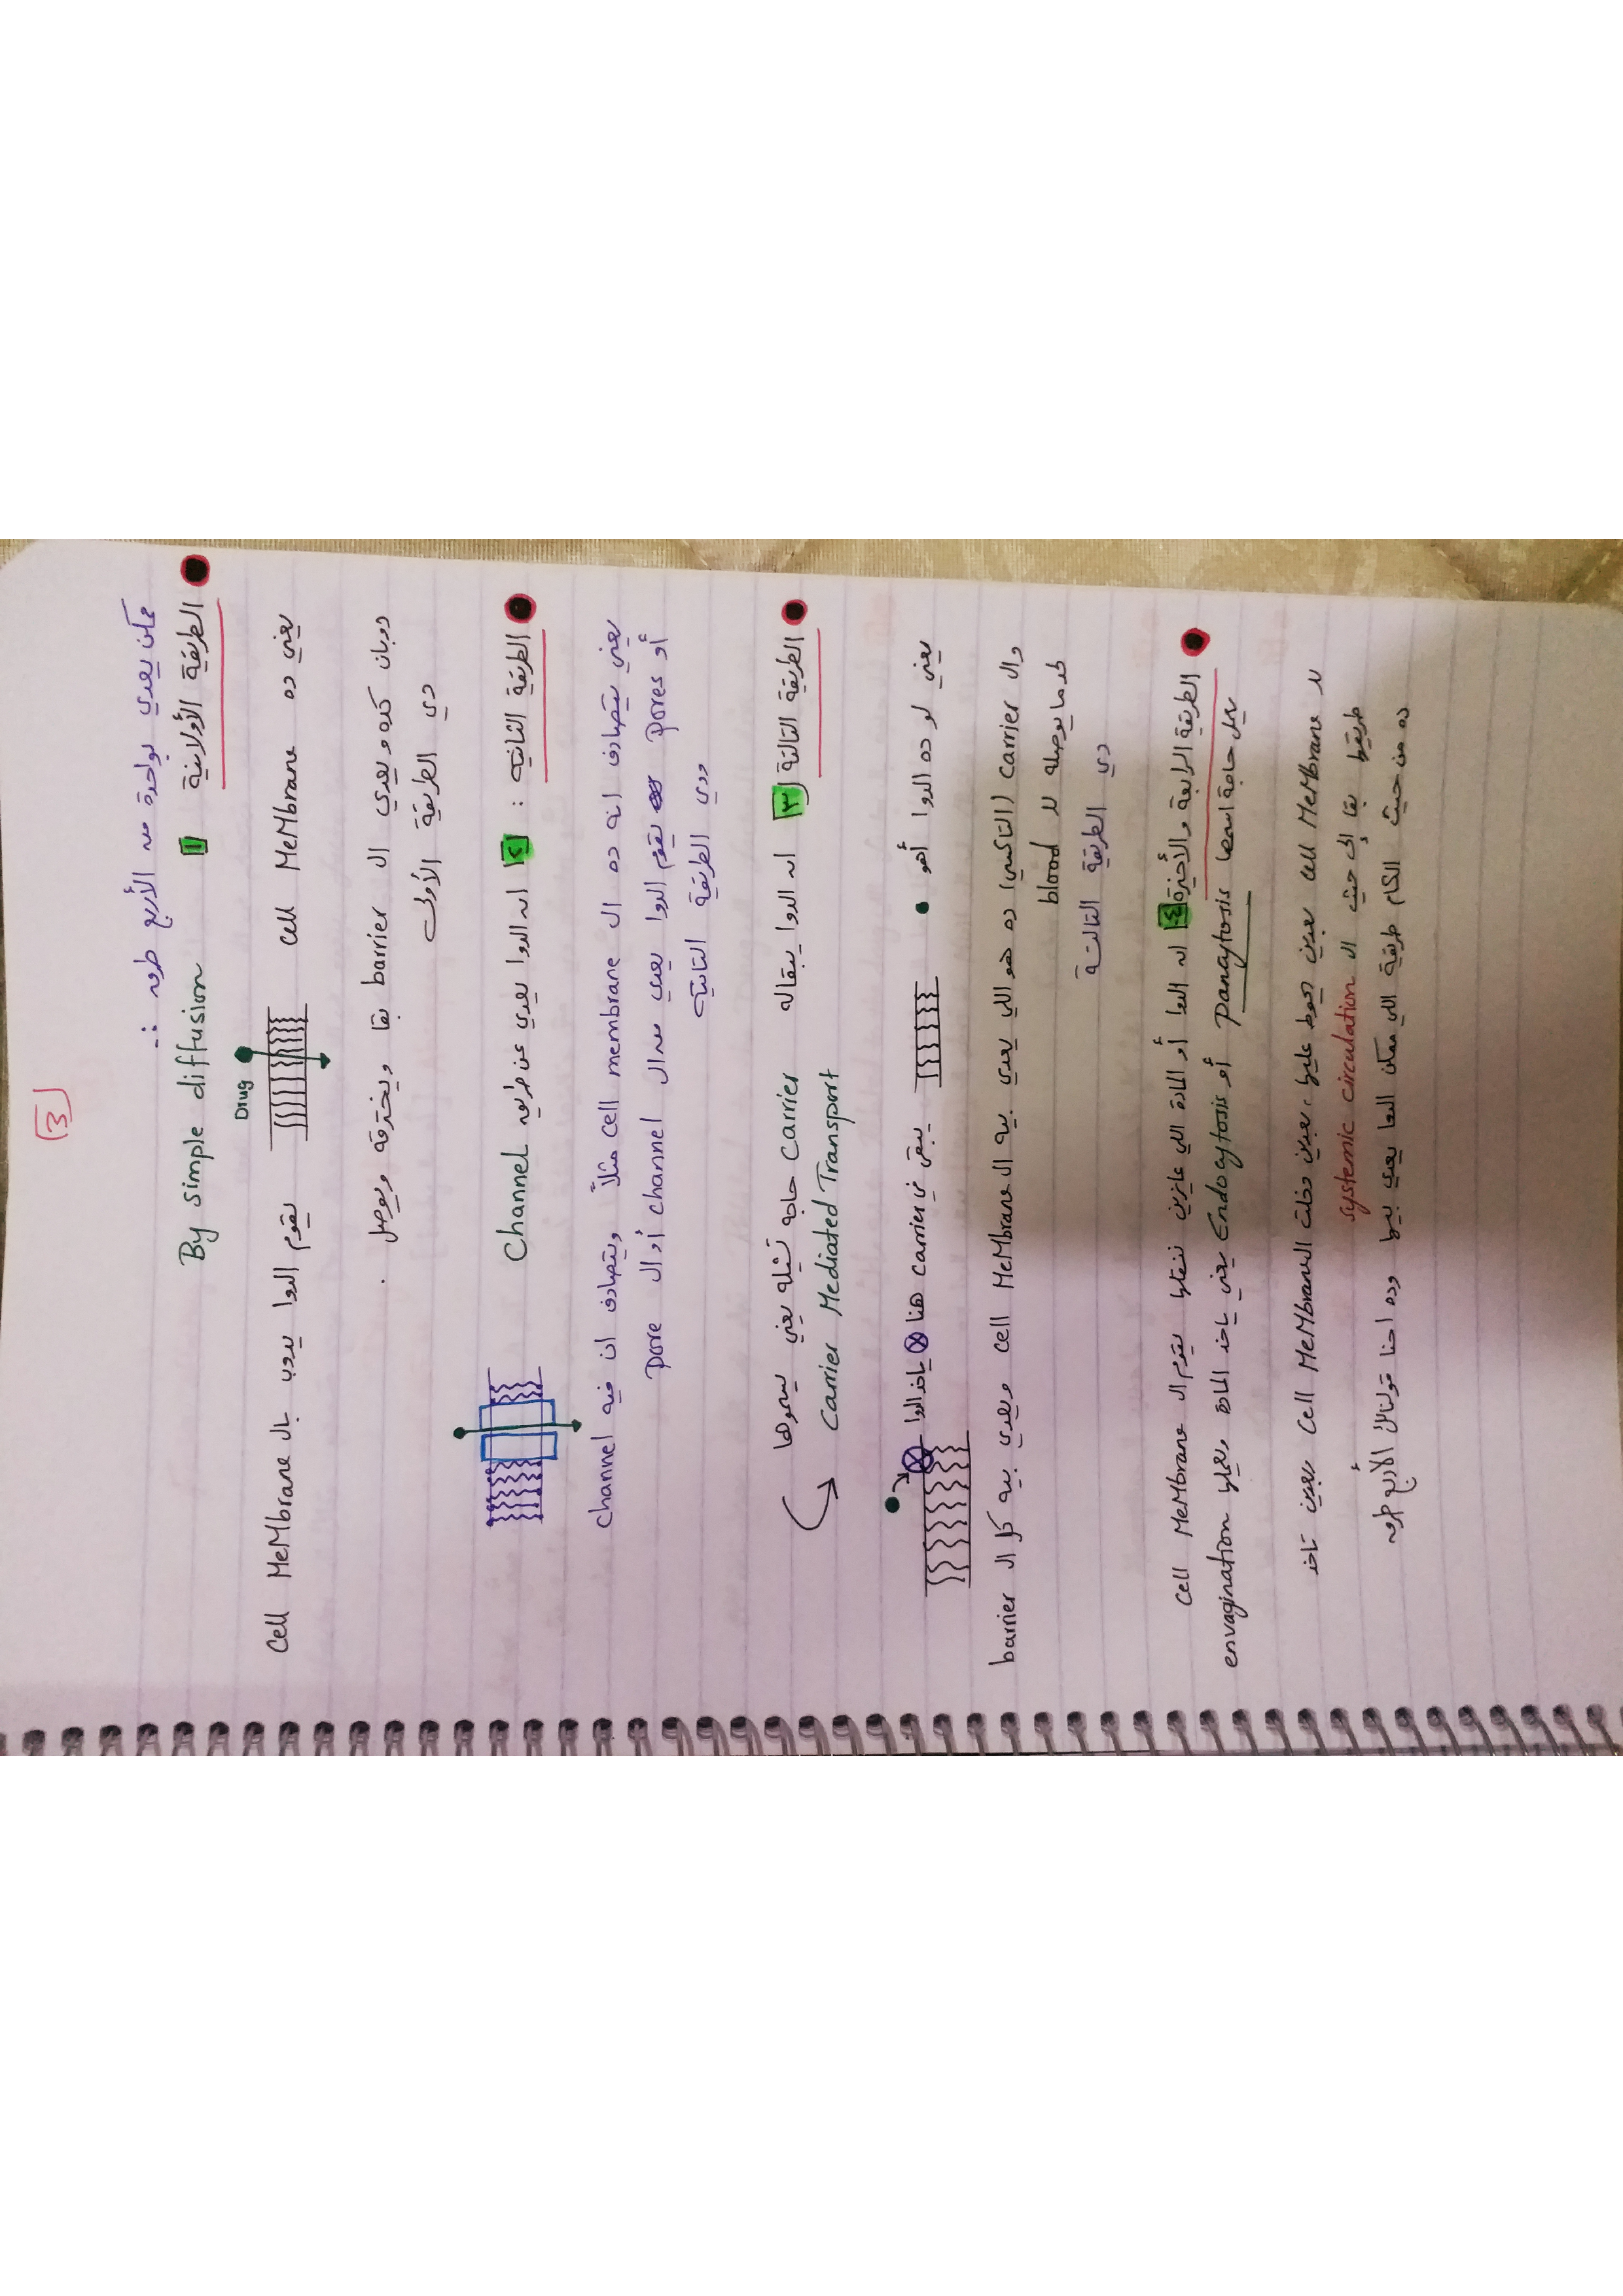 3
∴ ممكن يعدي بواحدة من الأربع طرق
الطريقة الأولانية 1 By simple diffusion
Drug
يعني ده cell MeMbrane يقوم الدوا يدوب بال cell MeMbrane
دوبان كده ويعدي ال barrier بقا ويخترقه ويوصل .
دي الطريقة الأولى
الطريقة الثانية : ٢ ان الدوا يعدي عن طريق Channel
يعني يتصادف انه ده ال cell membrane مثلاً ويتصادف ان فيه channel
أو pores يقوم الدوا يعدي من ال channel أو ال pore
ودي الطريقة التانية
الطريقة التالتة ٣ ان الدوا يبقاله carrier حاجه تشيله يعني يسموها
Carrier Mediated Transport
يعني لو ده الدوا أهو يبقى في carrier هنا ياخد الدوا
وال carrier (التاكسي) ده هو اللي يعدي بيه ال cell MeMbrane ويعدي بيه كل ال barrier
لحد ما يوصله لل blood
دي الطريقة التالتة
الطريقة الرابعة والأخيرة ٤ ان الدوا أو المادة اللي عايزين ننقلها يقوم ال cell MeMbrane
يعمل حاجة اسمها Panocytosis أو Endocytosis يعني ياخد المادة ويعملها envagination
لل cell MeMbrane بعدين يحوط عليها، بعدين دخلت ال cell MeMbrane بعدين تاخد
طريقها بقا إلى حيث ال systemic circulation
ده من حيث الكام طريقة اللي ممكن الدوا يعدي بيها وده احنا قولنا الأربع طرق